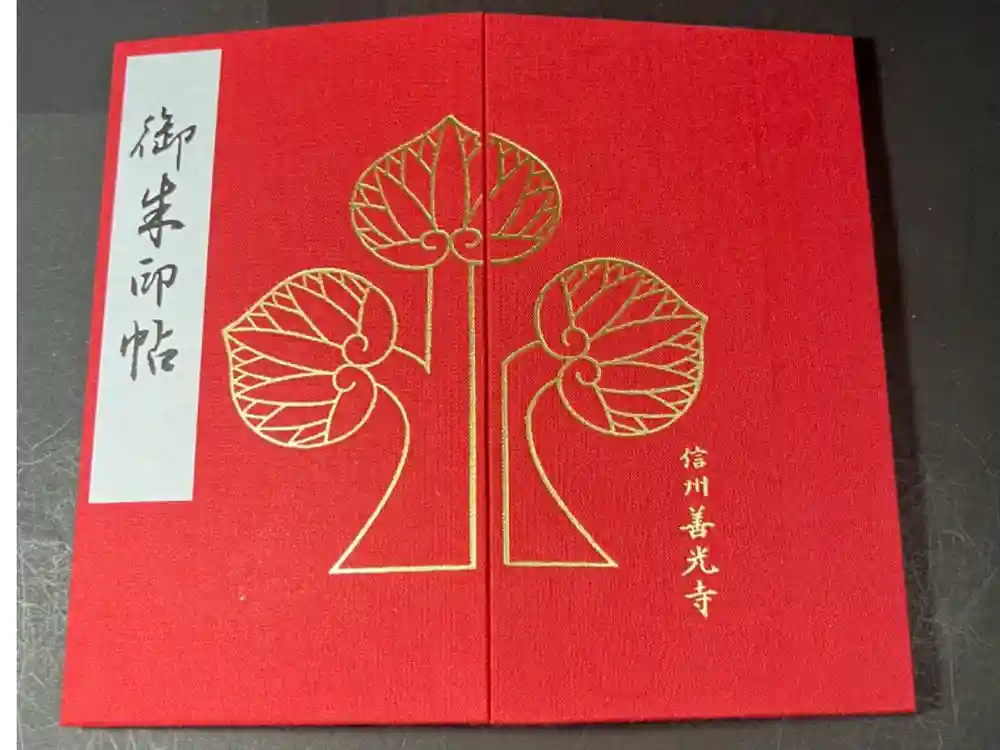 御朱印帖
信州善光寺